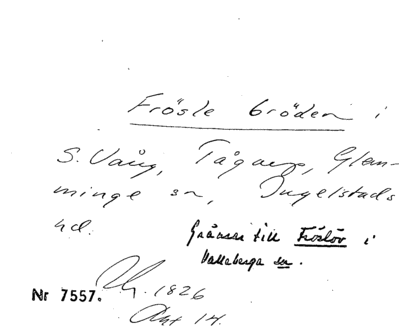 Frösle bröden i
S. Vång, Tågarp, Glem-
minge sn, Ingelstads
hd.
Gränsar till Fröslöv i
Valleberga sn.
Nr 7557. 1826
Akt 14.